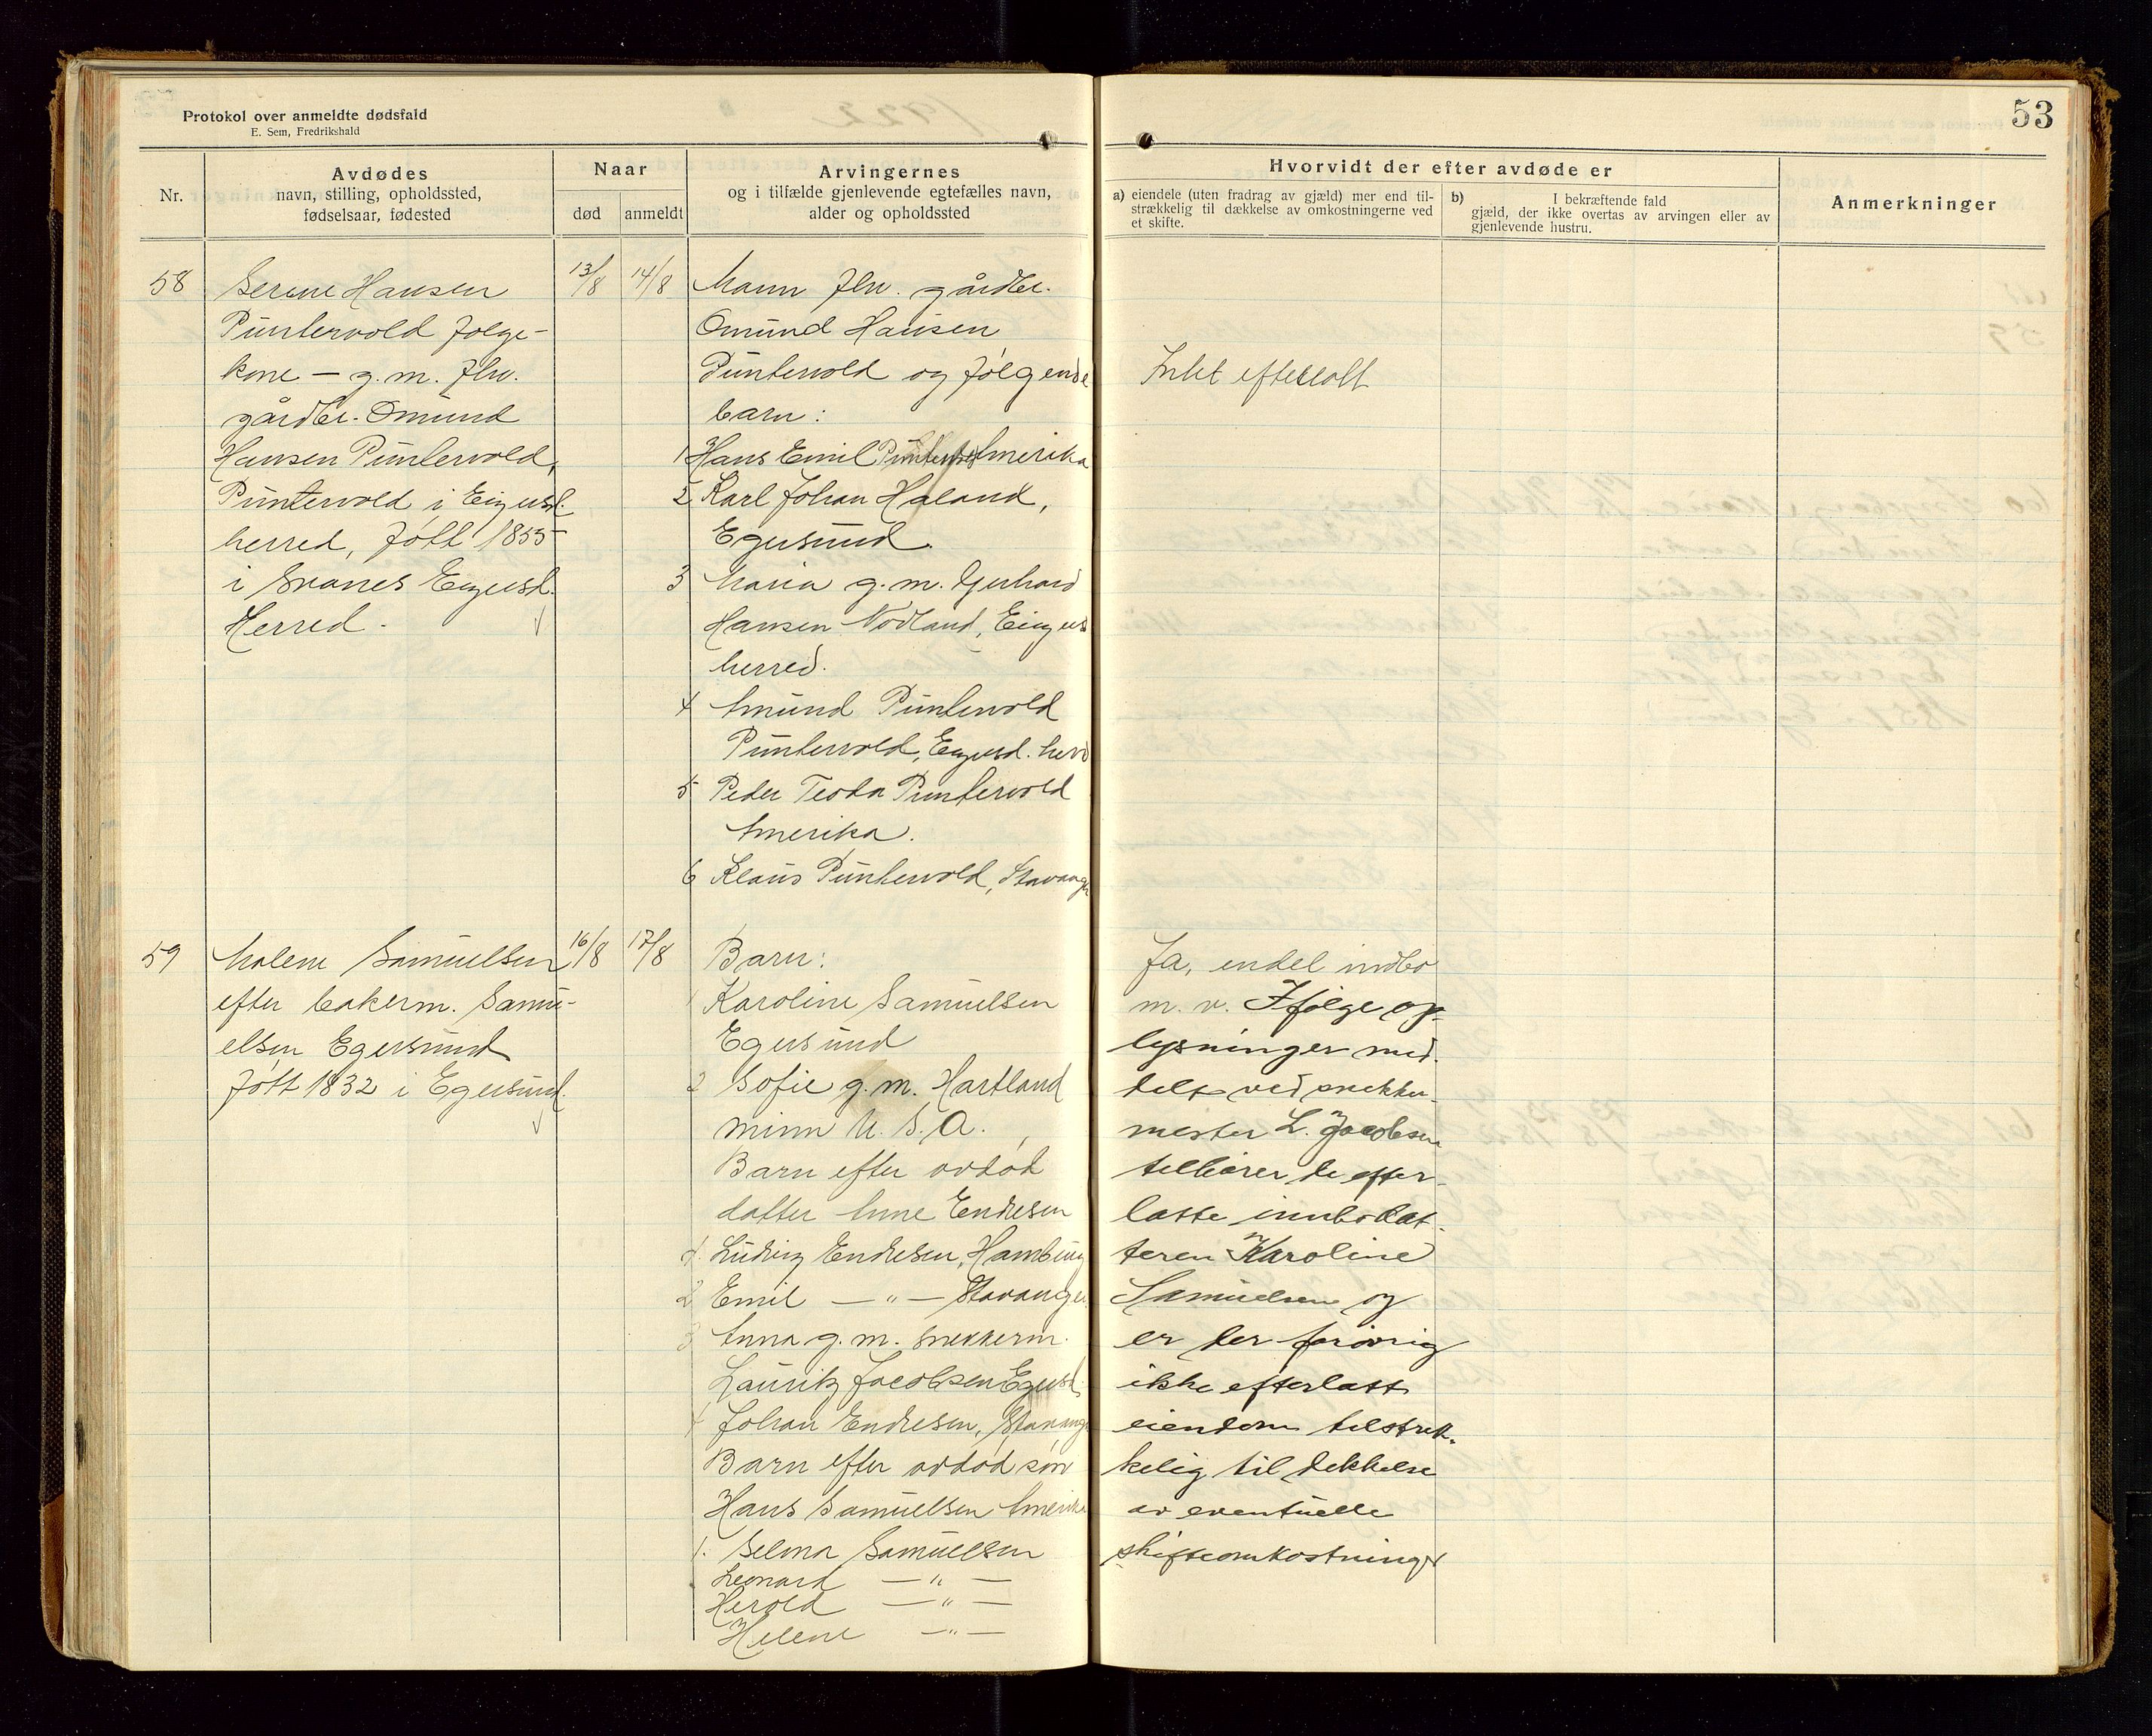 Protokol over anmeldte dødsfald
E. Sem, Fredrikshald
53
Nr.
Avdødes
navn, stilling, opholdssted,
fødselsaar, fødested
Naar
død
anmeldt
Arvingernes
og i tilfælde gjenlevende egtefælles navn,
alder og opholdssted
Hvorvidt der efter avdøde er
a) eiendele (uten fradrag av gjæld) mer end til-
strækkelig til dækkelse av omkostningerne ved
et skifte.
b) I bekræftende fald
gjæld, der ikke overtas av arvingen eller av
gjenlevende hustru.
Anmerkninger
58
Serene Hansen
Puntervold folge-
kone - g.m. fhv.
gårdbr. Omund
Hansen Puntervold,
Puntervold i Eigersd.
herred, født 1855
i Svanes Eigersd.
Herred.
13/8
14/8
Mann fhv. gårdbr.
Omund Hansen
Puntervold og følgende
barn:
1 Hans Emil Puntervold Amerika
2 Karl Johan Haland,
Egersund.
3 Maria g. m. Gerhard
Hansen Nodland, Eigers
herred.
4 Amund Puntervold
Puntervold, Eigersd. herd
5 Peder Teodor Puntervold
Amerika.
6 Klaus Puntervold, Stavanger
Intet efterlatt
59
Malene Samuelsen
efter bakerm. Samu-
elsen Egersund
født 1832 i Egersund.
16/8
17/8
Barn:
1 Karoline Samuelsen
Egersund
2 Sofie g. m. Hartland
Minn U. S. A.
Barn efter avdød
datter Anne Endresen
1. Ludvig Endresen, Hamburg
2 Emil — " — Stavanger
3 Anna g. m. snekkerm.
Lauritz Jacobsen Egersd.
4 Johan Endresen, Stavanger
Barn efter avdød søn
Hans Samuelsen Amerika
1. Selma Samuelsen
Leonard — " —
Herold — " —
Helene — " —
Ja, endel indbo
m. v. Ifølge op-
lysninger med-
delt ved snekker-
mester L. Jacobsen
tilhører de efter-
latte innbo dat-
teren Karoline
Samuelsen og
er der forøvrig
ikke efterlatt
eiendom tilstræk-
kelig til dekkelse
av eventuelle
skifteomkostninger